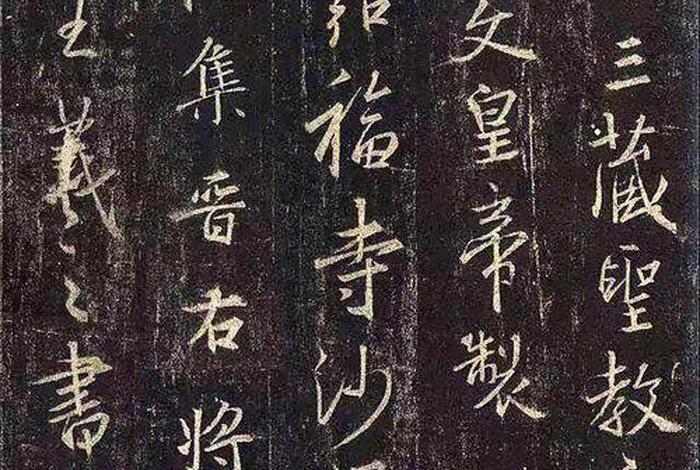 三藏聖教
文皇帝製
福寺沙
集晉右將
王羲之書